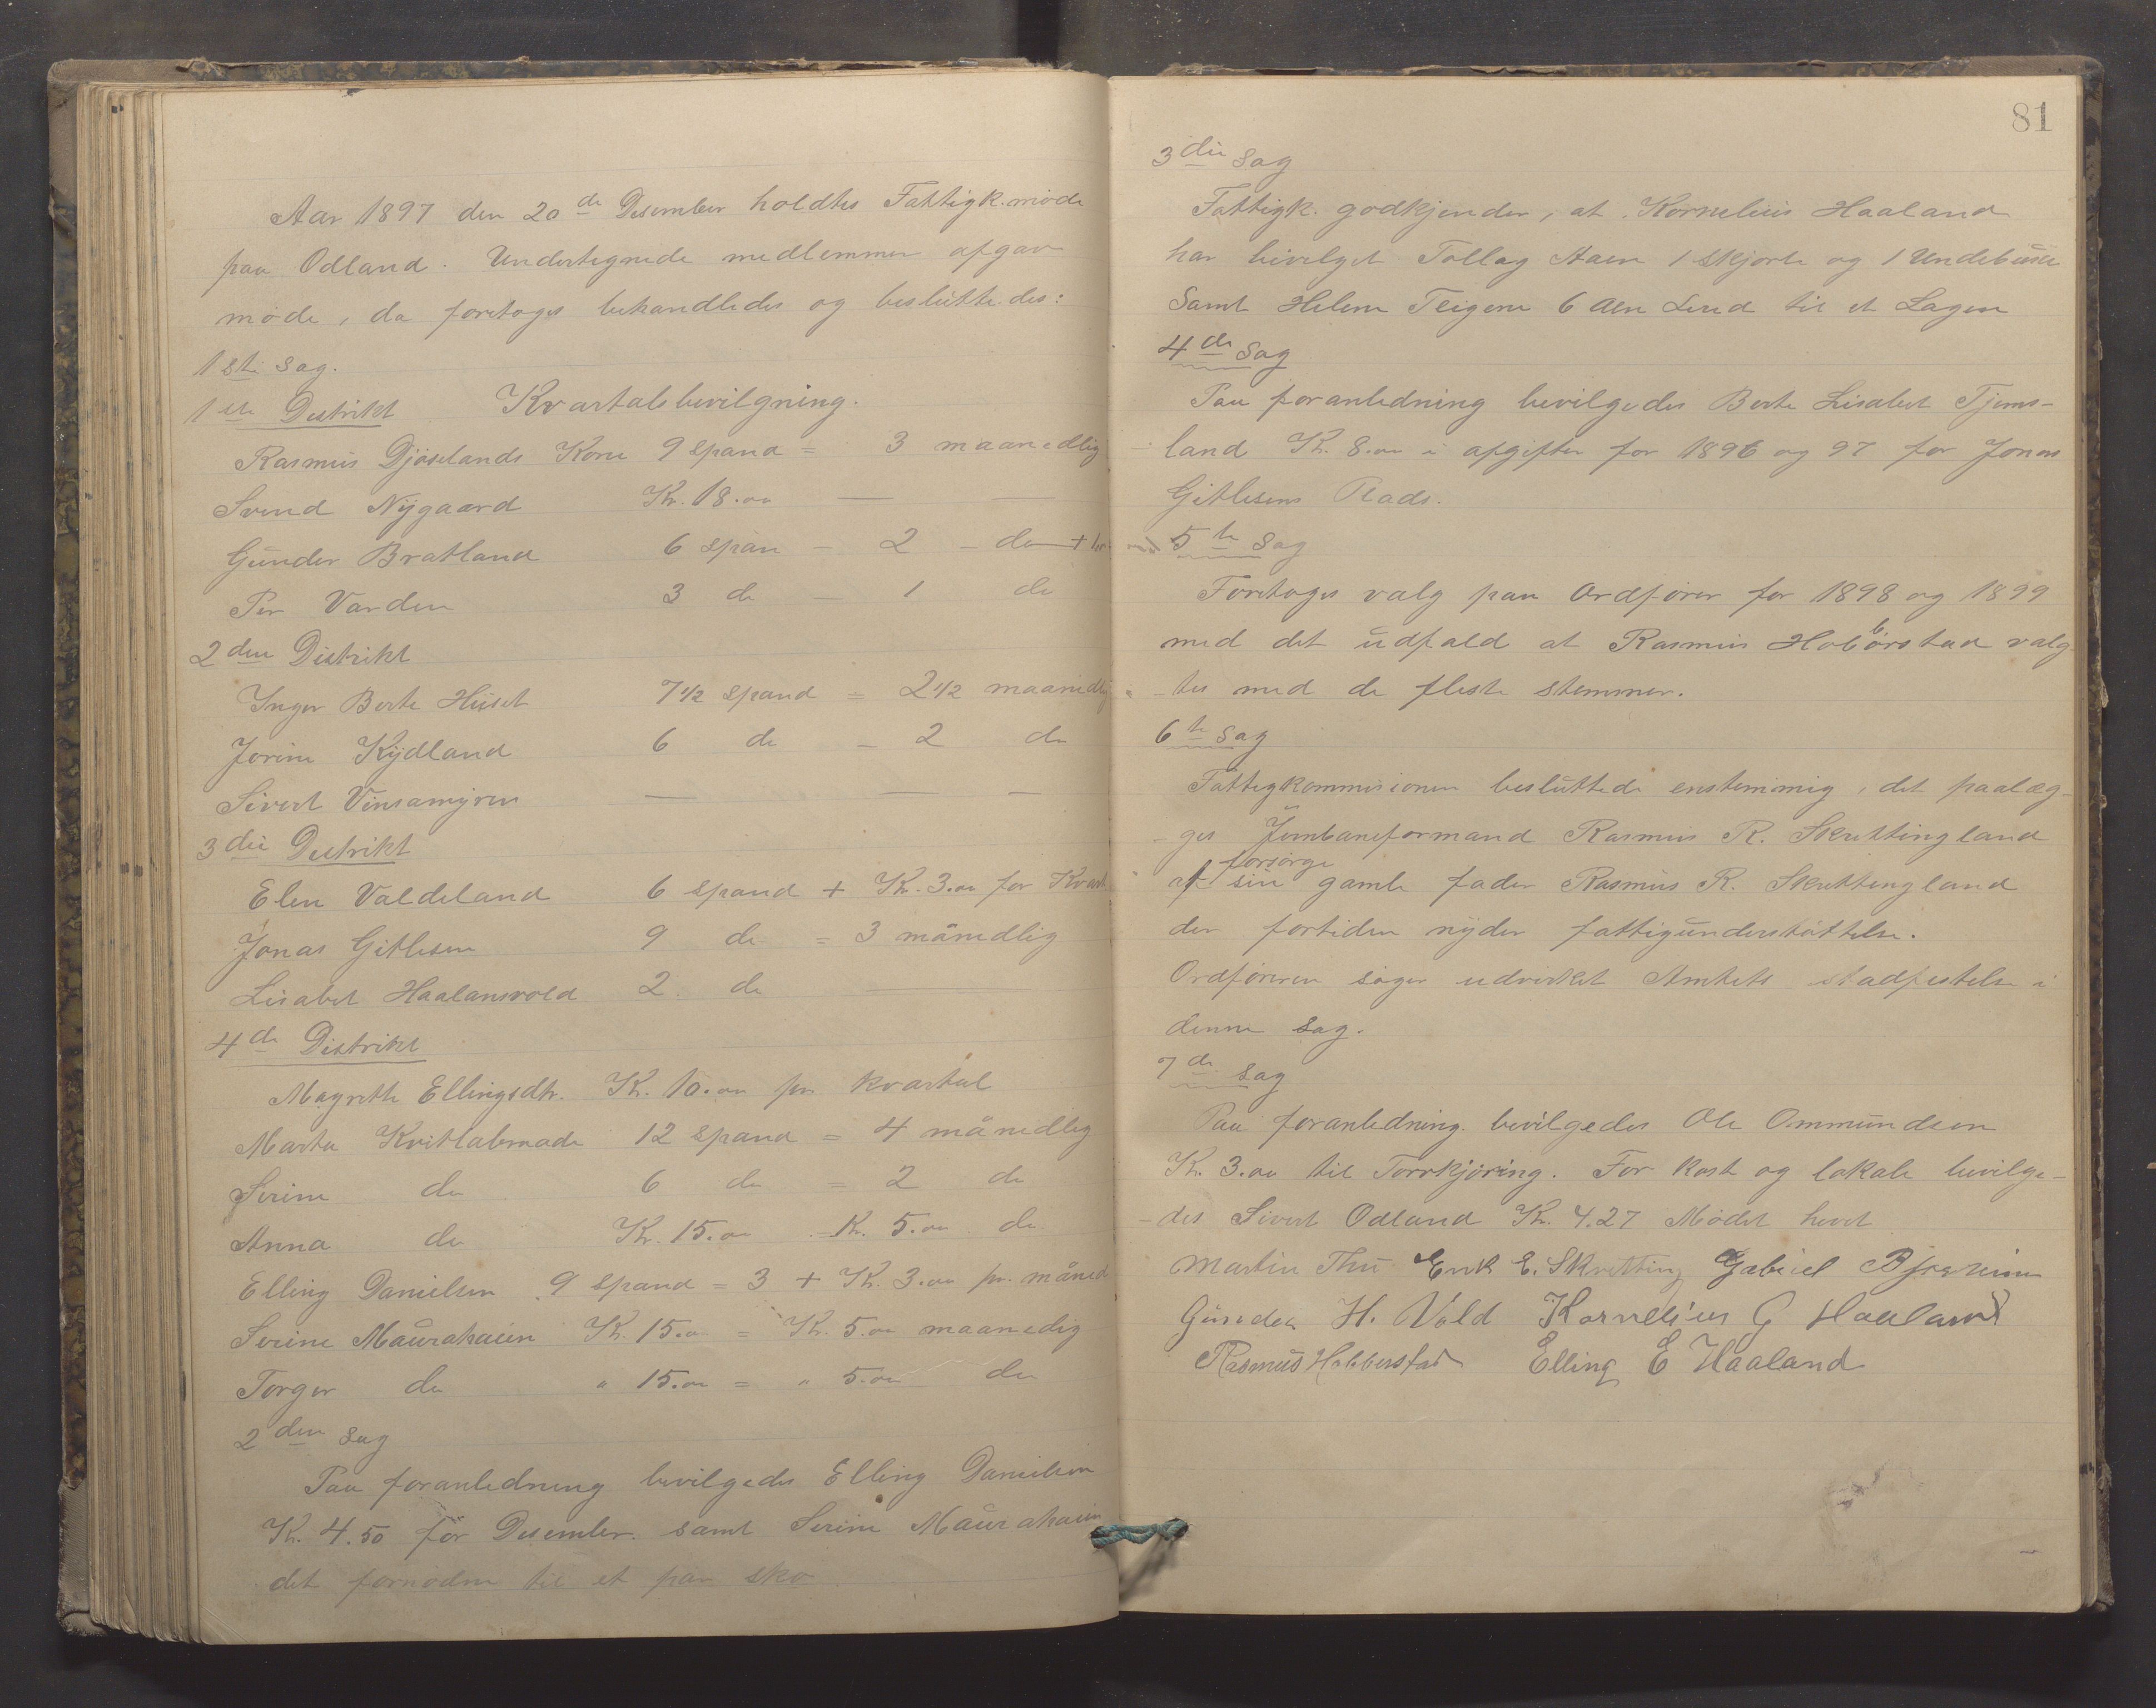 Aar 1897 den 20de Desember holdtes Fattigk.møde
paa Odland. Undertegnede medlemmer afgav
møde, da foretoges behandledes og besluttedes:
1ste Sag.
1ste Distrikt Kvartalsbevilgning.
Rasmus Djøselands Kone 9 spand = 3 maanedlig
Svend Nygaard Kr. 18.00 — —
Gunder Bratland 6 span – 2 – do +
Per Varden 3 do – 1 do
2den Distrikt
Inger Berte Huset 7 1/2 spand = 2 1/2 maanedlig
Jorine Kydland 6 do – 2 do
Sivert Vinsamyren — — —
3die Distrikt
Elen Valdeland 6 spand + Kr. 3.00 for Kvart
Jonas Gitlesen 9 do = 3 månedlig
Lisabet Haalansvold 2 do —
4de Distrikt
Magrethe Ellingsdtr. Kr. 10.00 pr kvartal
Marta Kvitlabmode 12 spand = 4 månedlig
Serine do 6 do = 2 do
Anna do Kr. 15.00 Kr. 5.00 do
Elling Danielsen 9 spand = 3 + Kr. 3.00 pr. måned
Serine Maurahaien Kr. 15.00 = Kr. 5.00 maanedig
Torger do " 15.00 = " 5.00 do
2den Sag
Paa foranledning bevilgedes Elling Danielsen
Kr. 4.50 før Desember. samt Serine Maurahaien
det fornødne til et par sko
81
3die Sag
Fattigk. godkjender, at Kornelius Haaland
har bevilget Tollag Aaen 1 skjorte og 1 Undebuxe
Samt Helene Teigene 6 alen Lerred til et Lagen
4de Sag
Paa foranledning bevilgedes Berte Lisabet Tjems-
land Kr. 8.00 i afgifter for 1896 og 97 for Jonas
Gitlesens Plads.
5te Sag
Foretoges valg paa Ordfører for 1898 og 1899
med det udfald at Rasmus Hobbørstad valg
-tes med de fleste stemmer.
6te Sag
Fattigkommisionen besluttede enstemmig, det paalæg-
-ges Jernbaneformand Rasmus R. Skrettingland
at forsørge sin gamle fader Rasmus R. Skrettingland
der fortiden nyder fattigunderstøttelse.
Ordføreren søger udvirket Amtets stadfestelse i
denne sag.
7de Sag
Paa foranledning bevilgedes Ole Ommundsen
Kr. 3.00 til Torvkjøring. For kost og lokale bevilge-
-des Sivert Odland Kr. 4.27 Mødet hevet
Martin Thu Enk E. Skretting Gabriel Bjereim
Gunder H. Vold Kornelius G Haaland
Rasmus Hobberstad Elling E Haaland